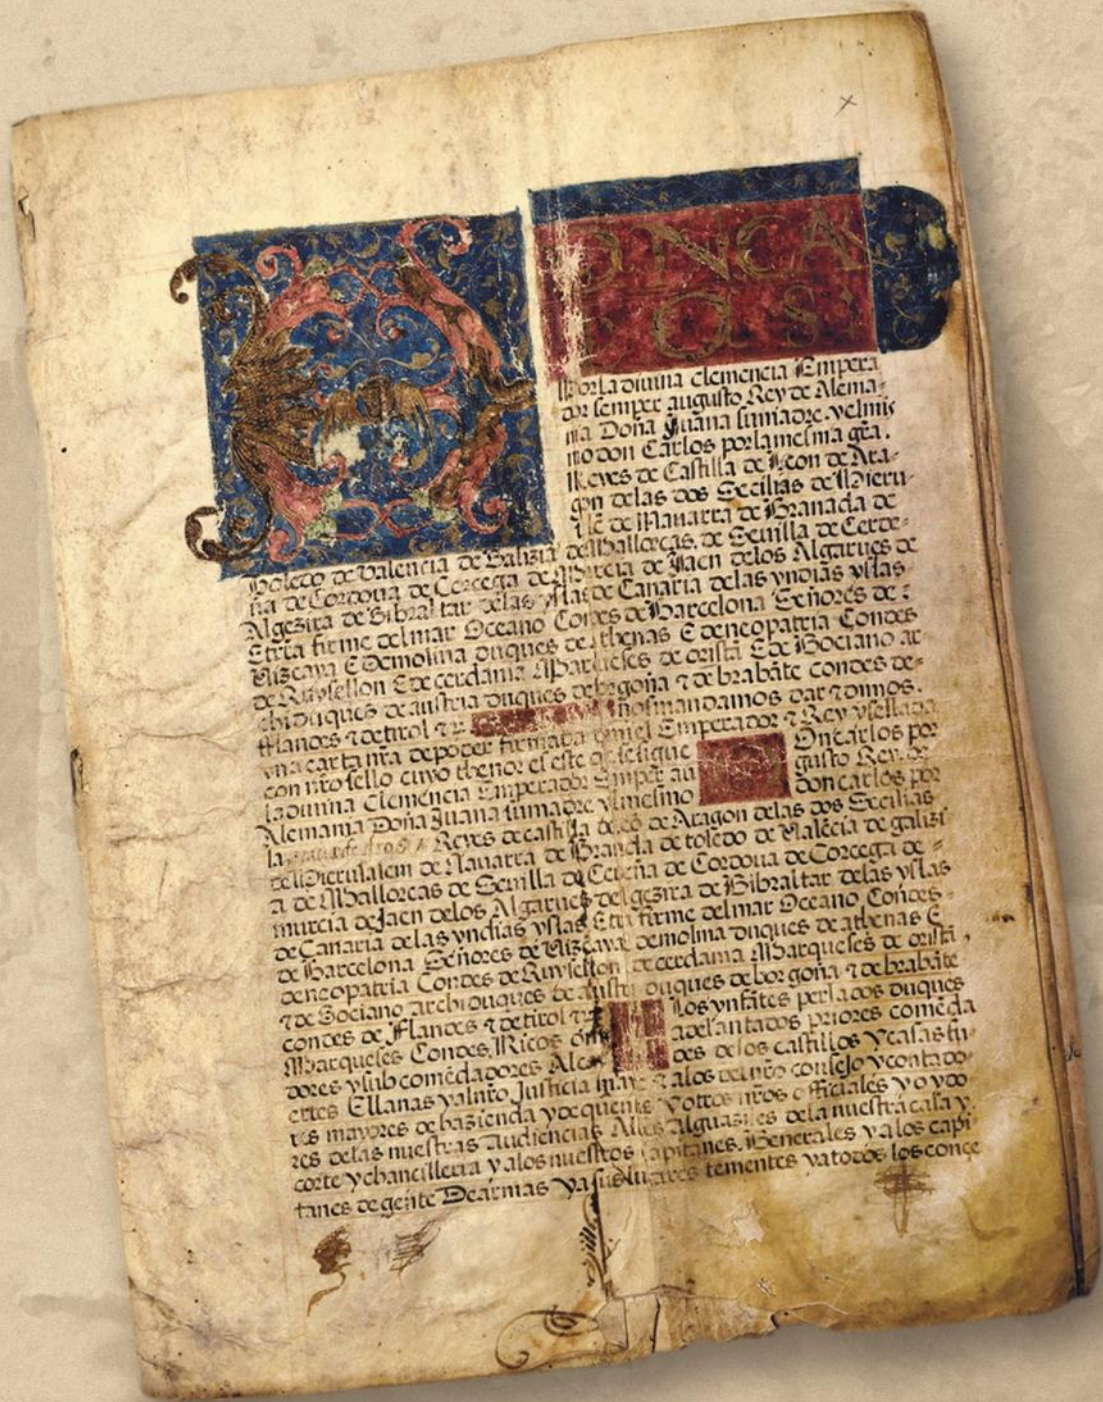 D ON CA
R L O S
Por la diuina clemencia Empera
dor semper augusto Rey de Alema-
nia Doña Juana su madre. y el mis
mo don Carlos por la mesma gra.
Reyes de Castilla de Leon de Ara-
gon de las dos Secilias de Hieru-
slē de Nauarra de Granada de
Toledo de Valencia de Galizia de Mallorcas. de Seuilla de Cerde-
ña de Cordoua de Corcega de Murcia de Jaen delos Algarues de
Algezira de Gibraltar delas yslas de Canaria delas yndias yslas
E trra firme del mar Oceano Condes de Barcelona Señores de
Vizcaya E Demolina duques de Athenas E deneopatria Condes
de Ruysellon E de cerdania Marqueses de oristā E de Gociano ar
chiduques de austria duques de borgoña ⁊ de brabāte condes de-
flandes ⁊ de tirol ⁊c. nos mandamos dar ⁊ dimos.
vna carta nra de poder firmada de mi el Emperador ⁊ Rey y sellada
con nro sello cuyo thenor es este que se sigue Don carlos por
la diuina Clemencia Emperador Semper au gusto Rey de
Alemania Doña Juana su madre y el mesmo don carlos por
la Reyes de castilla de leō de Aragon delas dos Secilias
de Hierusalem de Nauarra de Granada de toledo de Valēcia de galizi
a de Mallorcas de Seuilla de Cerdeña de Cordoua de Corcega de-
murcia de Jaen delos Algarues del gezira de Gibraltar delas yslas
de Canaria delas yndias yslas E trra firme del mar Oceano Condes-
de Barcelona Señores de Vizcaya E demolina duques de athenas E
deneopatria Condes de Ruysellon E de cerdania Marqueses de oristā,
⁊ de Gociano archiduques de austria duques de borgoña ⁊ de brabāte
condes de Flandes ⁊ de tirol ⁊c A los ynfātes perlados duques
Marqueses Condes. Ricos ōms adelantados priores comēda
dores y sub comēdadores Alcay des de los castillos y casas fu-
ertes E llanas y al nro Justicia mayor ⁊ alos del nro consejo y contado-
res mayores de hazienda y de quentas y otros nros officiales y oydo
res delas nuestras audiencias Alles Alguaziles dela nuestra casa y.
corte y chancilleria y alos nuestros capitanes. Generales y a los capi-
tanes de gente De armas y a sus lugares tenientes y a todos los conce